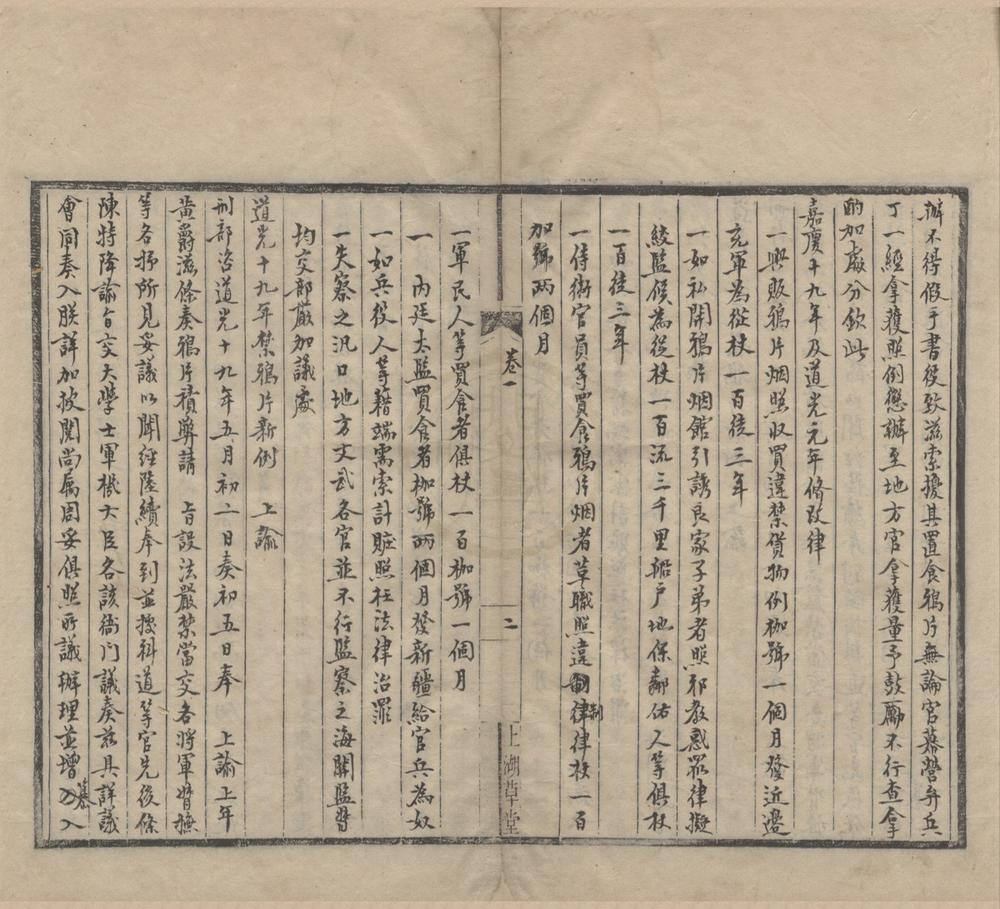 辦不得假手書役致滋索擾其置食鴉片無論官幕營弁兵
丁一經拿獲照例懲辦至地方官拿獲量予鼓勵不行查拿
酌加處分欽此
嘉慶十九年及道光元年修改律
一興販鴉片烟照収買違禁貨物例枷號一個月發近邊
充軍為從杖一百徒三年
一如私開鴉片烟館引誘良家子弟者照邪教惑眾律擬
絞監候為從杖一百流三千里船戶地保鄰佑人等俱杖
一百徒三年
一侍衛官員等買食鴉片烟者草職照違制律律杖一百
加號兩個月
卷一
二
上湖草堂
一軍民人等買食者俱杖一百枷號一個月
一 內廷太監買食者枷號兩個月發新疆給官兵為奴
一如兵役人等藉端需索計賍照枉法律治罪
一失察之汛口地方文武各官並不行監察之海關監督
均交部嚴加議處
道光十九年禁鴉片新例 上諭
刑部咨道光十九年五月初二日奏初五日奉 上諭上年
黃爵滋條奏鴉片積弊請 旨設法嚴禁當交各將軍督撫
等各抒所見妥議以聞經陸續奉到並據科道等官先後條
陳特降諭旨交大學士軍機大臣各該衙門議奏茲具詳議
會同奏入朕詳加披閱尚屬周妥俱照所議辦理並增纂入